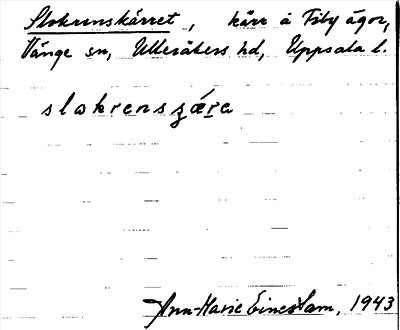 Slokrenskärret, kärr å Fiby ägor,
Vänge sn, Ulleråkers hd, Uppsala l.
slokrenszǽra
Ann-Marie 1943